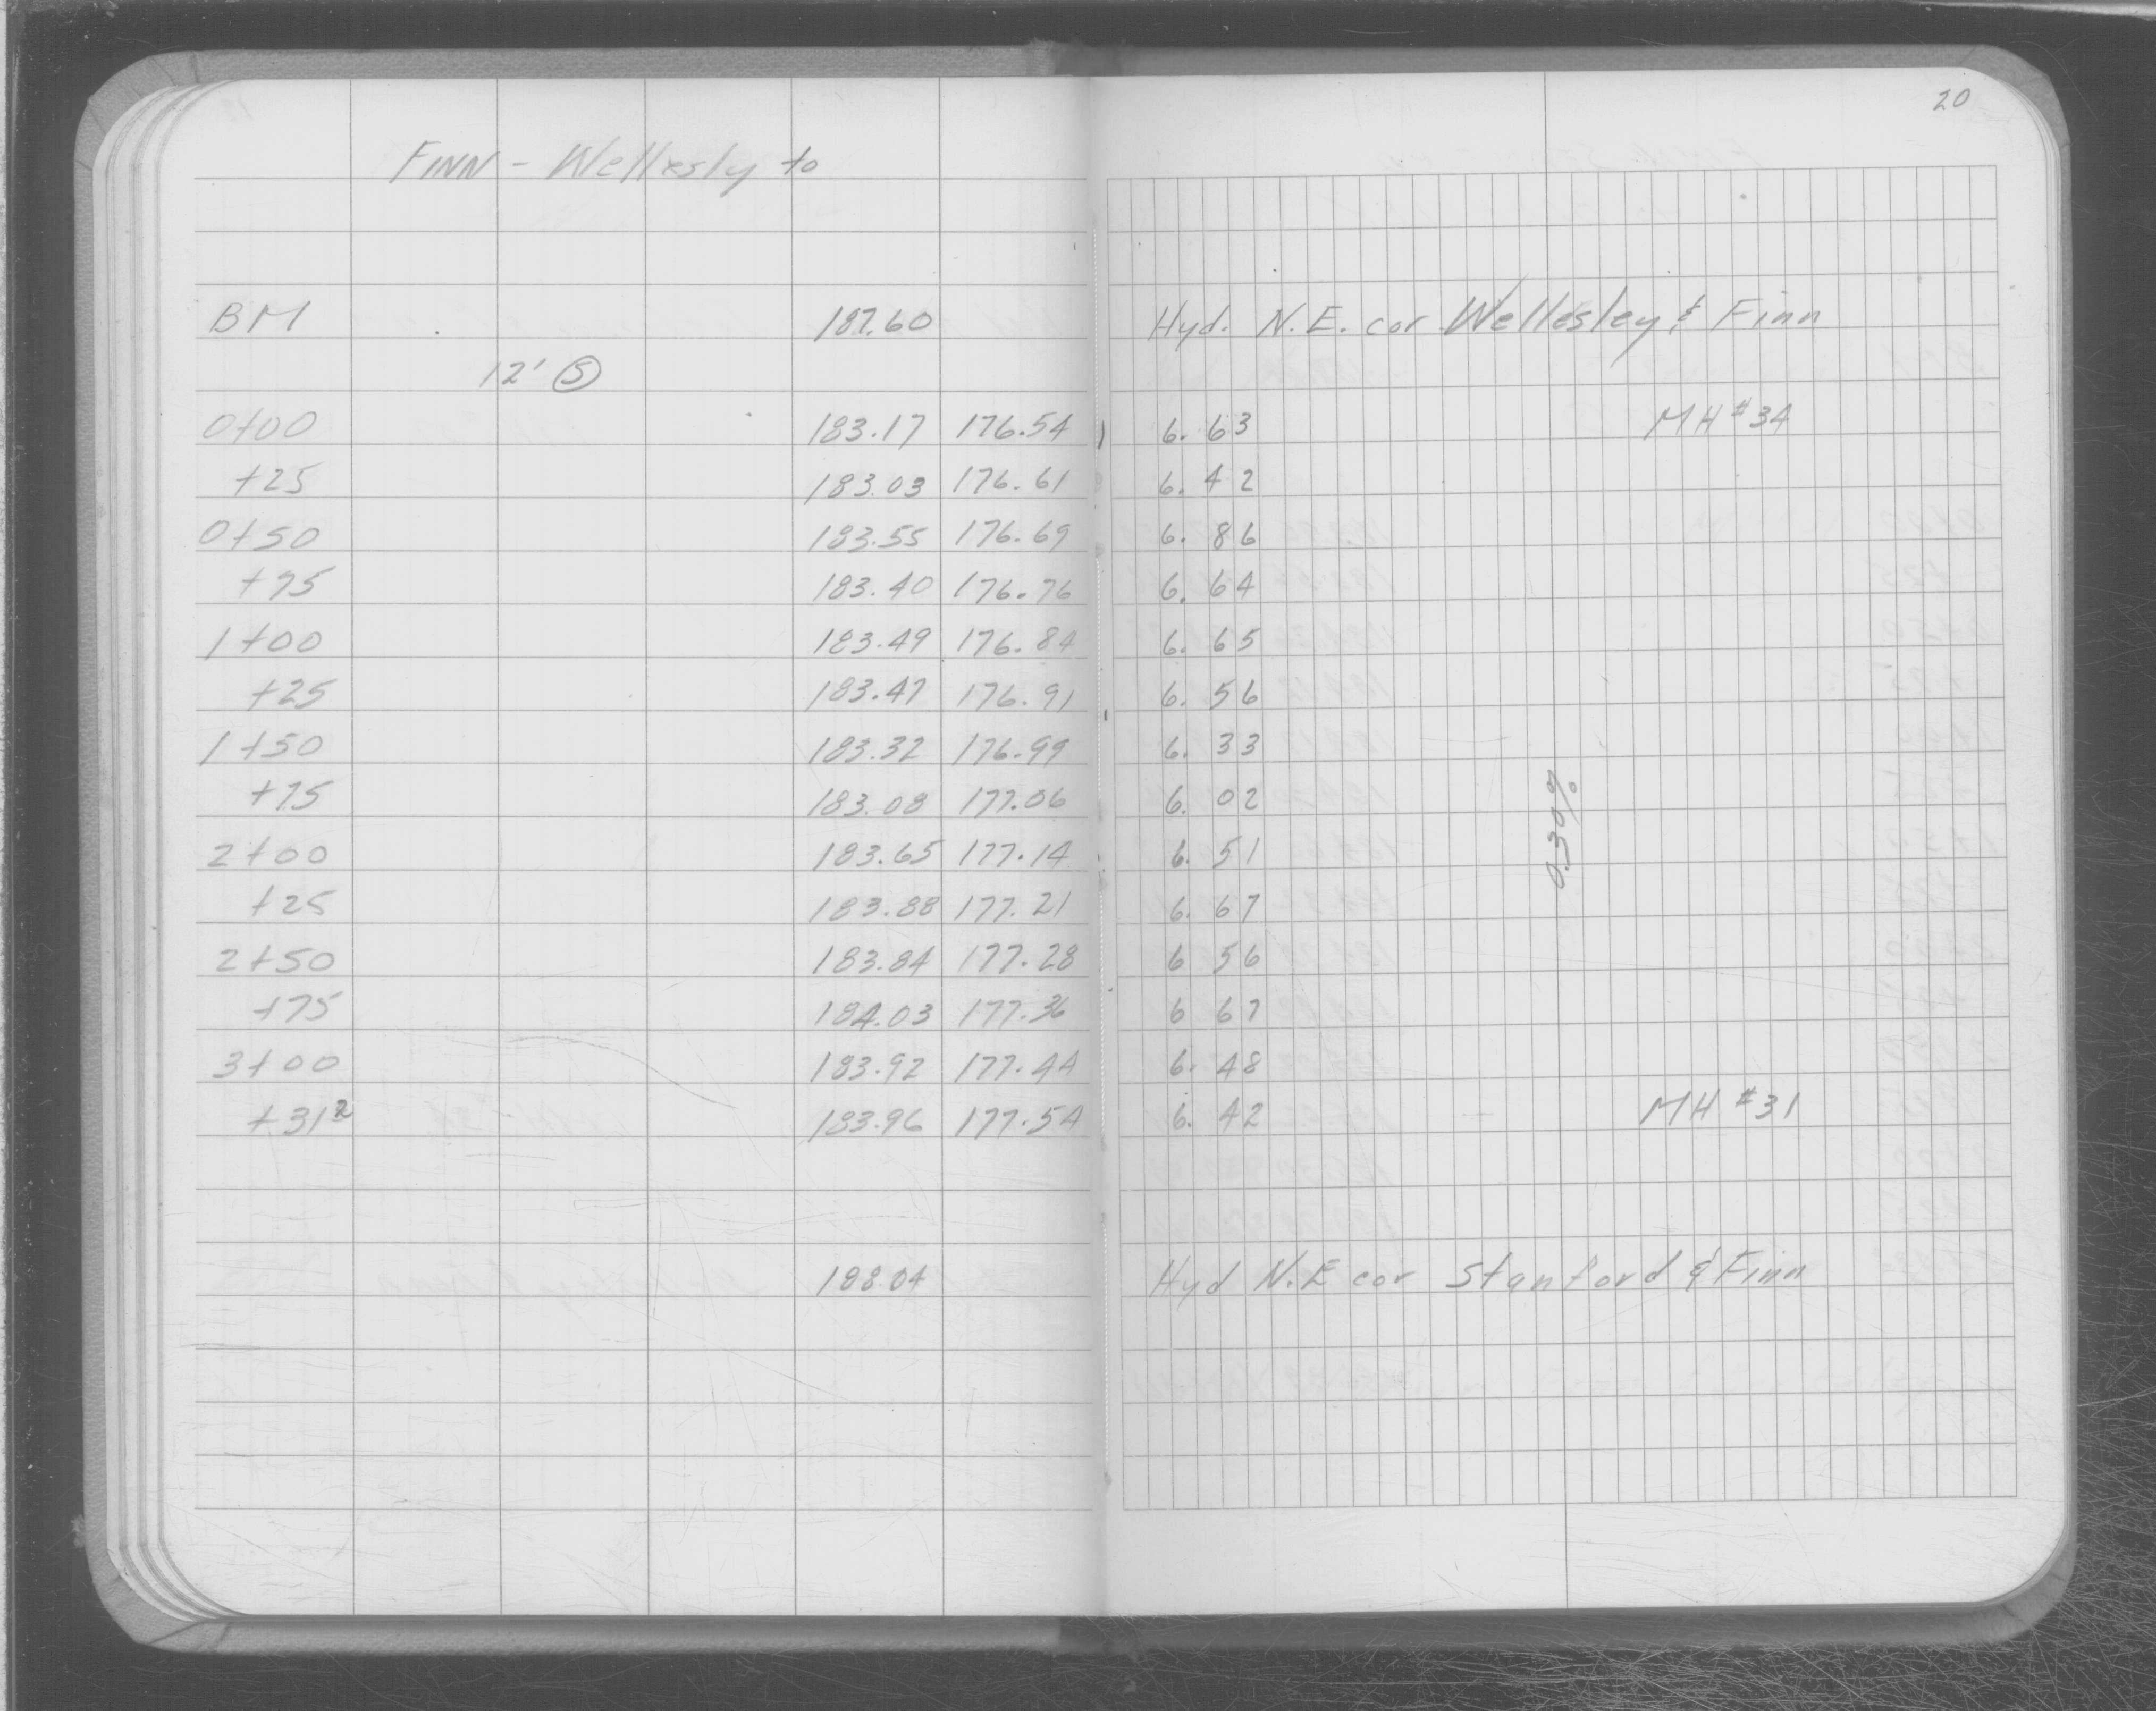 20
FINN - Wellesly to
BM 187.60 Hyd. N.E. cor Wellesley & Finn
12' Ⓢ
0+00 183.17 176.54 6.63 MH #34
+25 183.03 176.61 6.42
0+50 183.55 176.69 6.86
+75 183.40 176.76 6.64
1+00 183.49 176.84 6.65
+25 183.47 176.91 6.56
1+50 183.32 176.99 6.33
+75 183.08 177.06 6.02
0.30%
2+00 183.65 177.14 6.51
+25 183.88 177.21 6.67
2+50 183.84 177.28 6 56
+75 184.03 177.36 6 67
3+00 183.92 177.44 6.48
+31² 183.96 177.54 6.42 MH #31
188.04 Hyd N.E cor Stanford & Finn